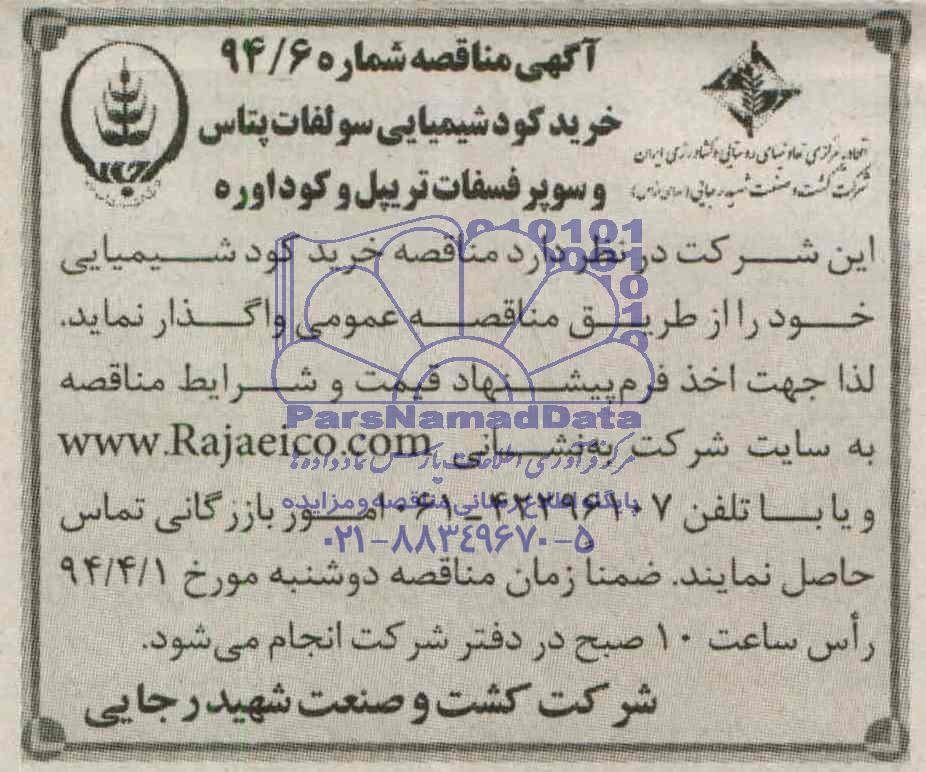 آگهی مناقصه شماره ۹۴/۶
خرید کود شیمیایی سولفات پتاس
و سوپر فسفات تریپل و کود اوره
اتحادیه مرکزی تعاونیهای روستایی و کشاورزی ایران
شرکت کشت و صنعت شهید رجایی (سهامی خاص)
این شرکت در نظر دارد مناقصه خرید کود شیمیایی
خود را از طریق مناقصه عمومی واگذار نماید.
لذا جهت اخذ فرم پیشنهاد قیمت و شرایط مناقصه
به سایت شرکت به‌نشانی www.Rajaeico.com
و یا با تلفن ۴۲۲۹۶۱۰۷-۰۶۱ امور بازرگانی تماس
حاصل نمایند. ضمنا زمان مناقصه دوشنبه مورخ ۹۴/۴/۱
رأس ساعت ۱۰ صبح در دفتر شرکت انجام می‌شود.
شرکت کشت و صنعت شهید رجایی
ParsNamadData
مرکز فرآوری اطلاعات پارس نماد داده‌ها
پایگاه اطلاع رسانی مناقصه و مزایده
۰۲۱-۸۸۳۴۹۶۷۰-۵